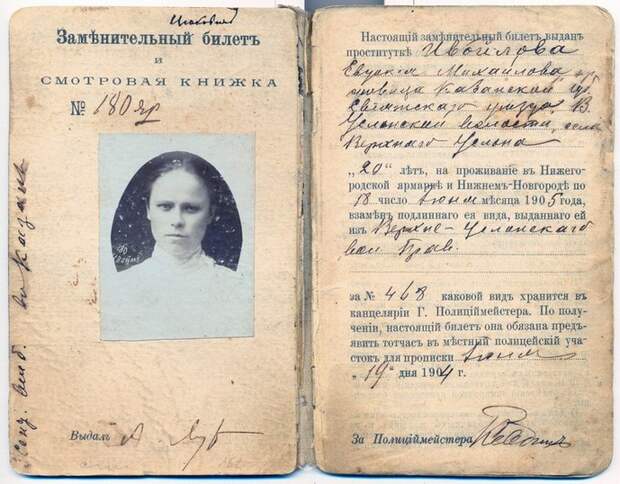 Замѣнительный билетъ
и
СМОТРОВАЯ КНИЖКА
№ 180 яр
Выдалъ
Настоящій замѣнительный билетъ выданъ
проституткѣ Ивойлова
Евдокия Михайлова, кр
Казанской губ
Свіяжскаго уѣзда В.
Услонской волости, села
Верхняго Услона
„20“ лѣтъ, на проживаніе въ Нижего-
родской ярмаркѣ и Нижнемъ-Новгородѣ по
18 число Іюня мѣсяца 1905 года,
взамѣнъ подлиннаго ея вида, выданнаго ей
изъ Верхне-Услонскаго
вол. Прав.
за № 463 каковой видъ хранится въ
канцеляріи Г. Полиціймейстера. По полу-
ченіи, настоящій билетъ она обязана предъ-
явить тотчасъ въ мѣстный полицейскій уча-
стокъ для прописки Іюня
„19“ дня 1904 г.
За Полиціймейстера